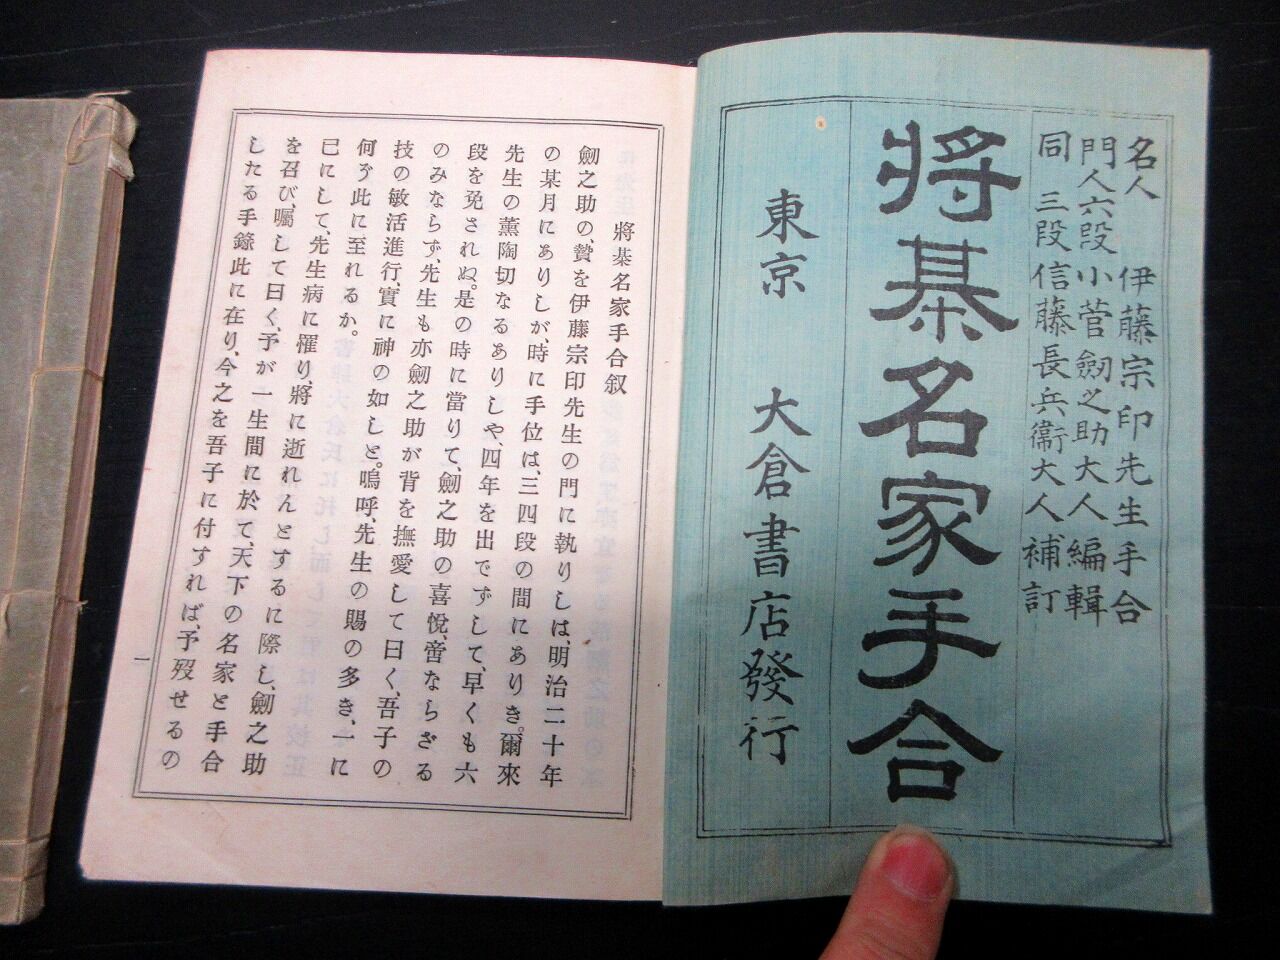 名人 伊藤宗印先生手合
門人六段 小菅劒之助大人編輯
同 三段信藤長兵衞大人補訂
將棊名家手合
東京 大倉書店發行
將棊名家手合叙
劒之助の、贄を伊藤宗印先生の門に執りしは、明治二十年
の某月にありしが、時に手位は、三四段の間にありき。爾來
先生の薫陶切なるありしや、四年を出でずして、早くも六
段を免されぬ。是の時に當りて、劒之助の喜悅、啻ならざる
のみならず、先生も亦劒之助が背を撫愛して曰く、吾子の
技の敏活進行、實に神の如しと。嗚呼、先生の賜の多き、一に
何ぞ此に至れるか。
已にして、先生病に罹り、將に逝れんとするに際し、劒之助
を召び、囑して曰く、予が一生間に於て、天下の名家と手合
したる手錄此に在り、今之を吾子に付すれば、予歿せるの
一